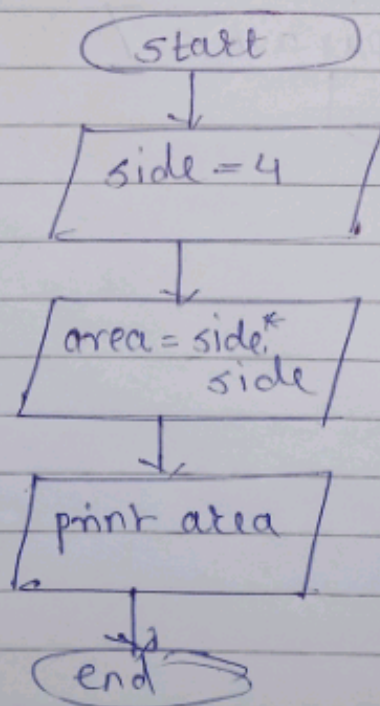 start
side = 4
area = side*
side
print area
end